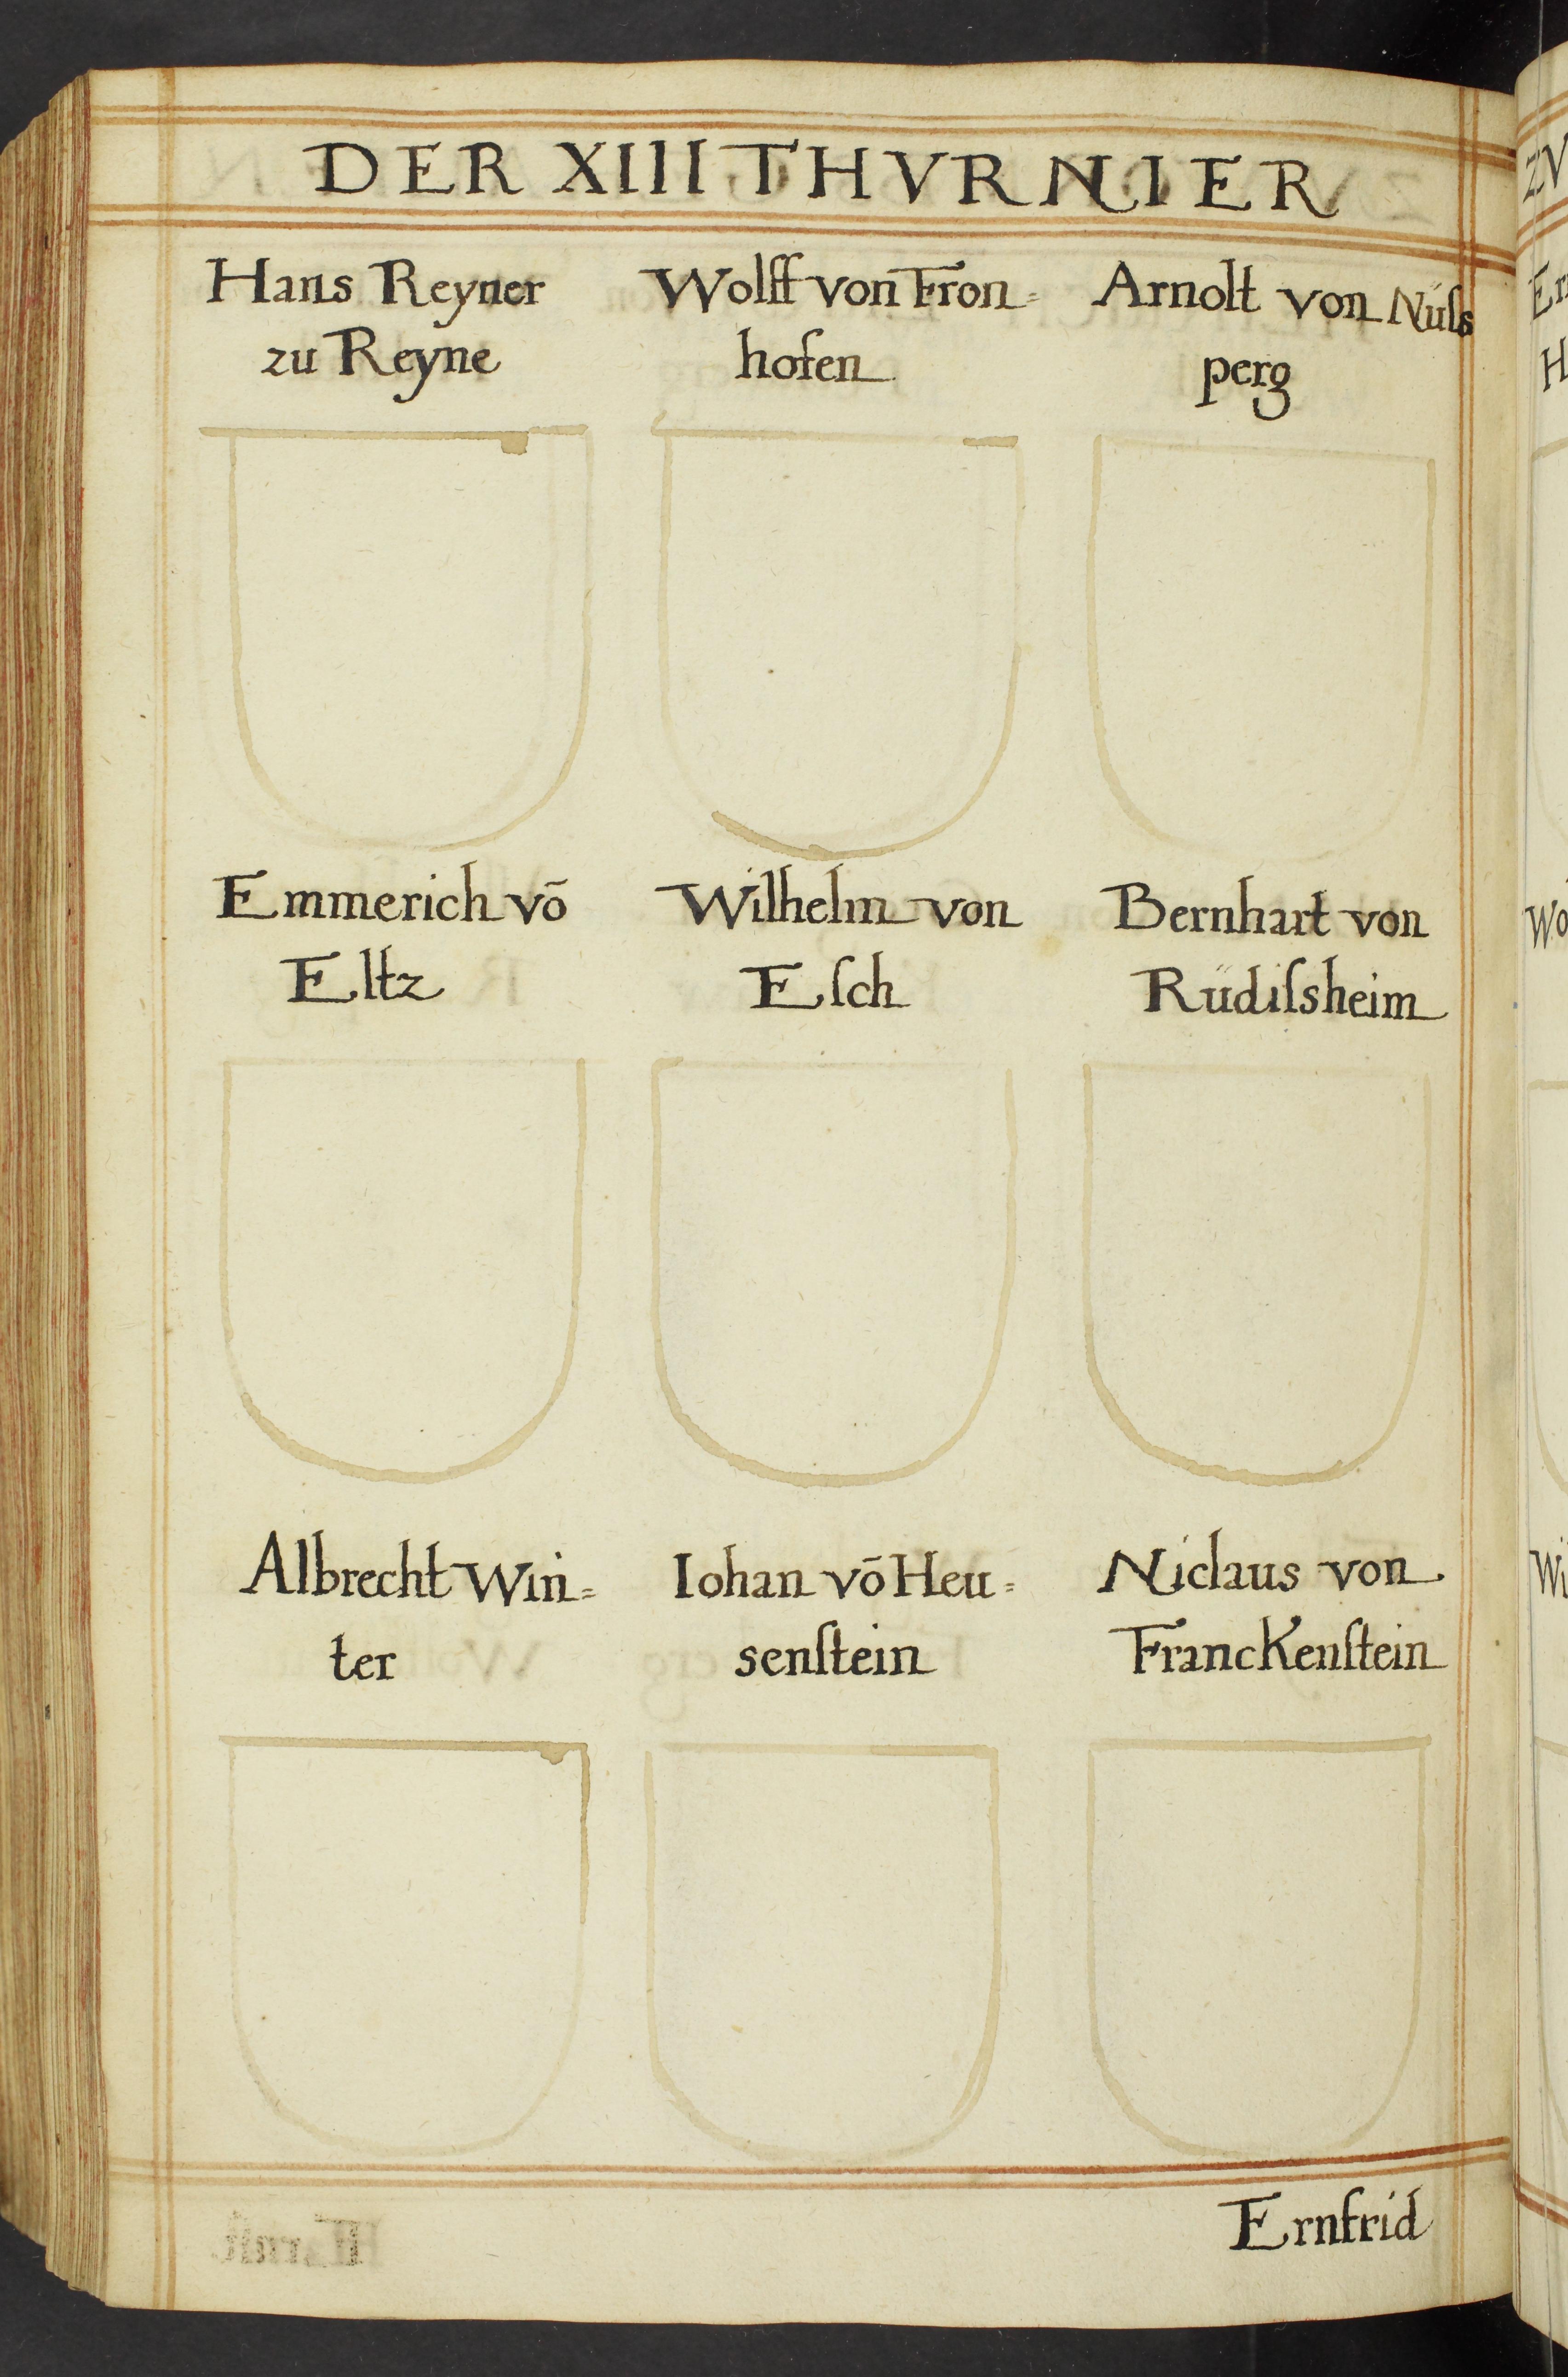 DER XIII THVRNIER
Hans Reyner
zu Reyne
Wolff von Fron=
hofen
Arnolt von Nüſs
perg
Emmerich vō
Eltz
Wilhelm von
Eſch
Bernhart von
Rüdiſsheim
Albrecht Win=
ter
Iohan vō Heu=
senſtein
Niclaus von
Franckenſtein
Ernfrid
ZV
Er
H
Wo
Wi